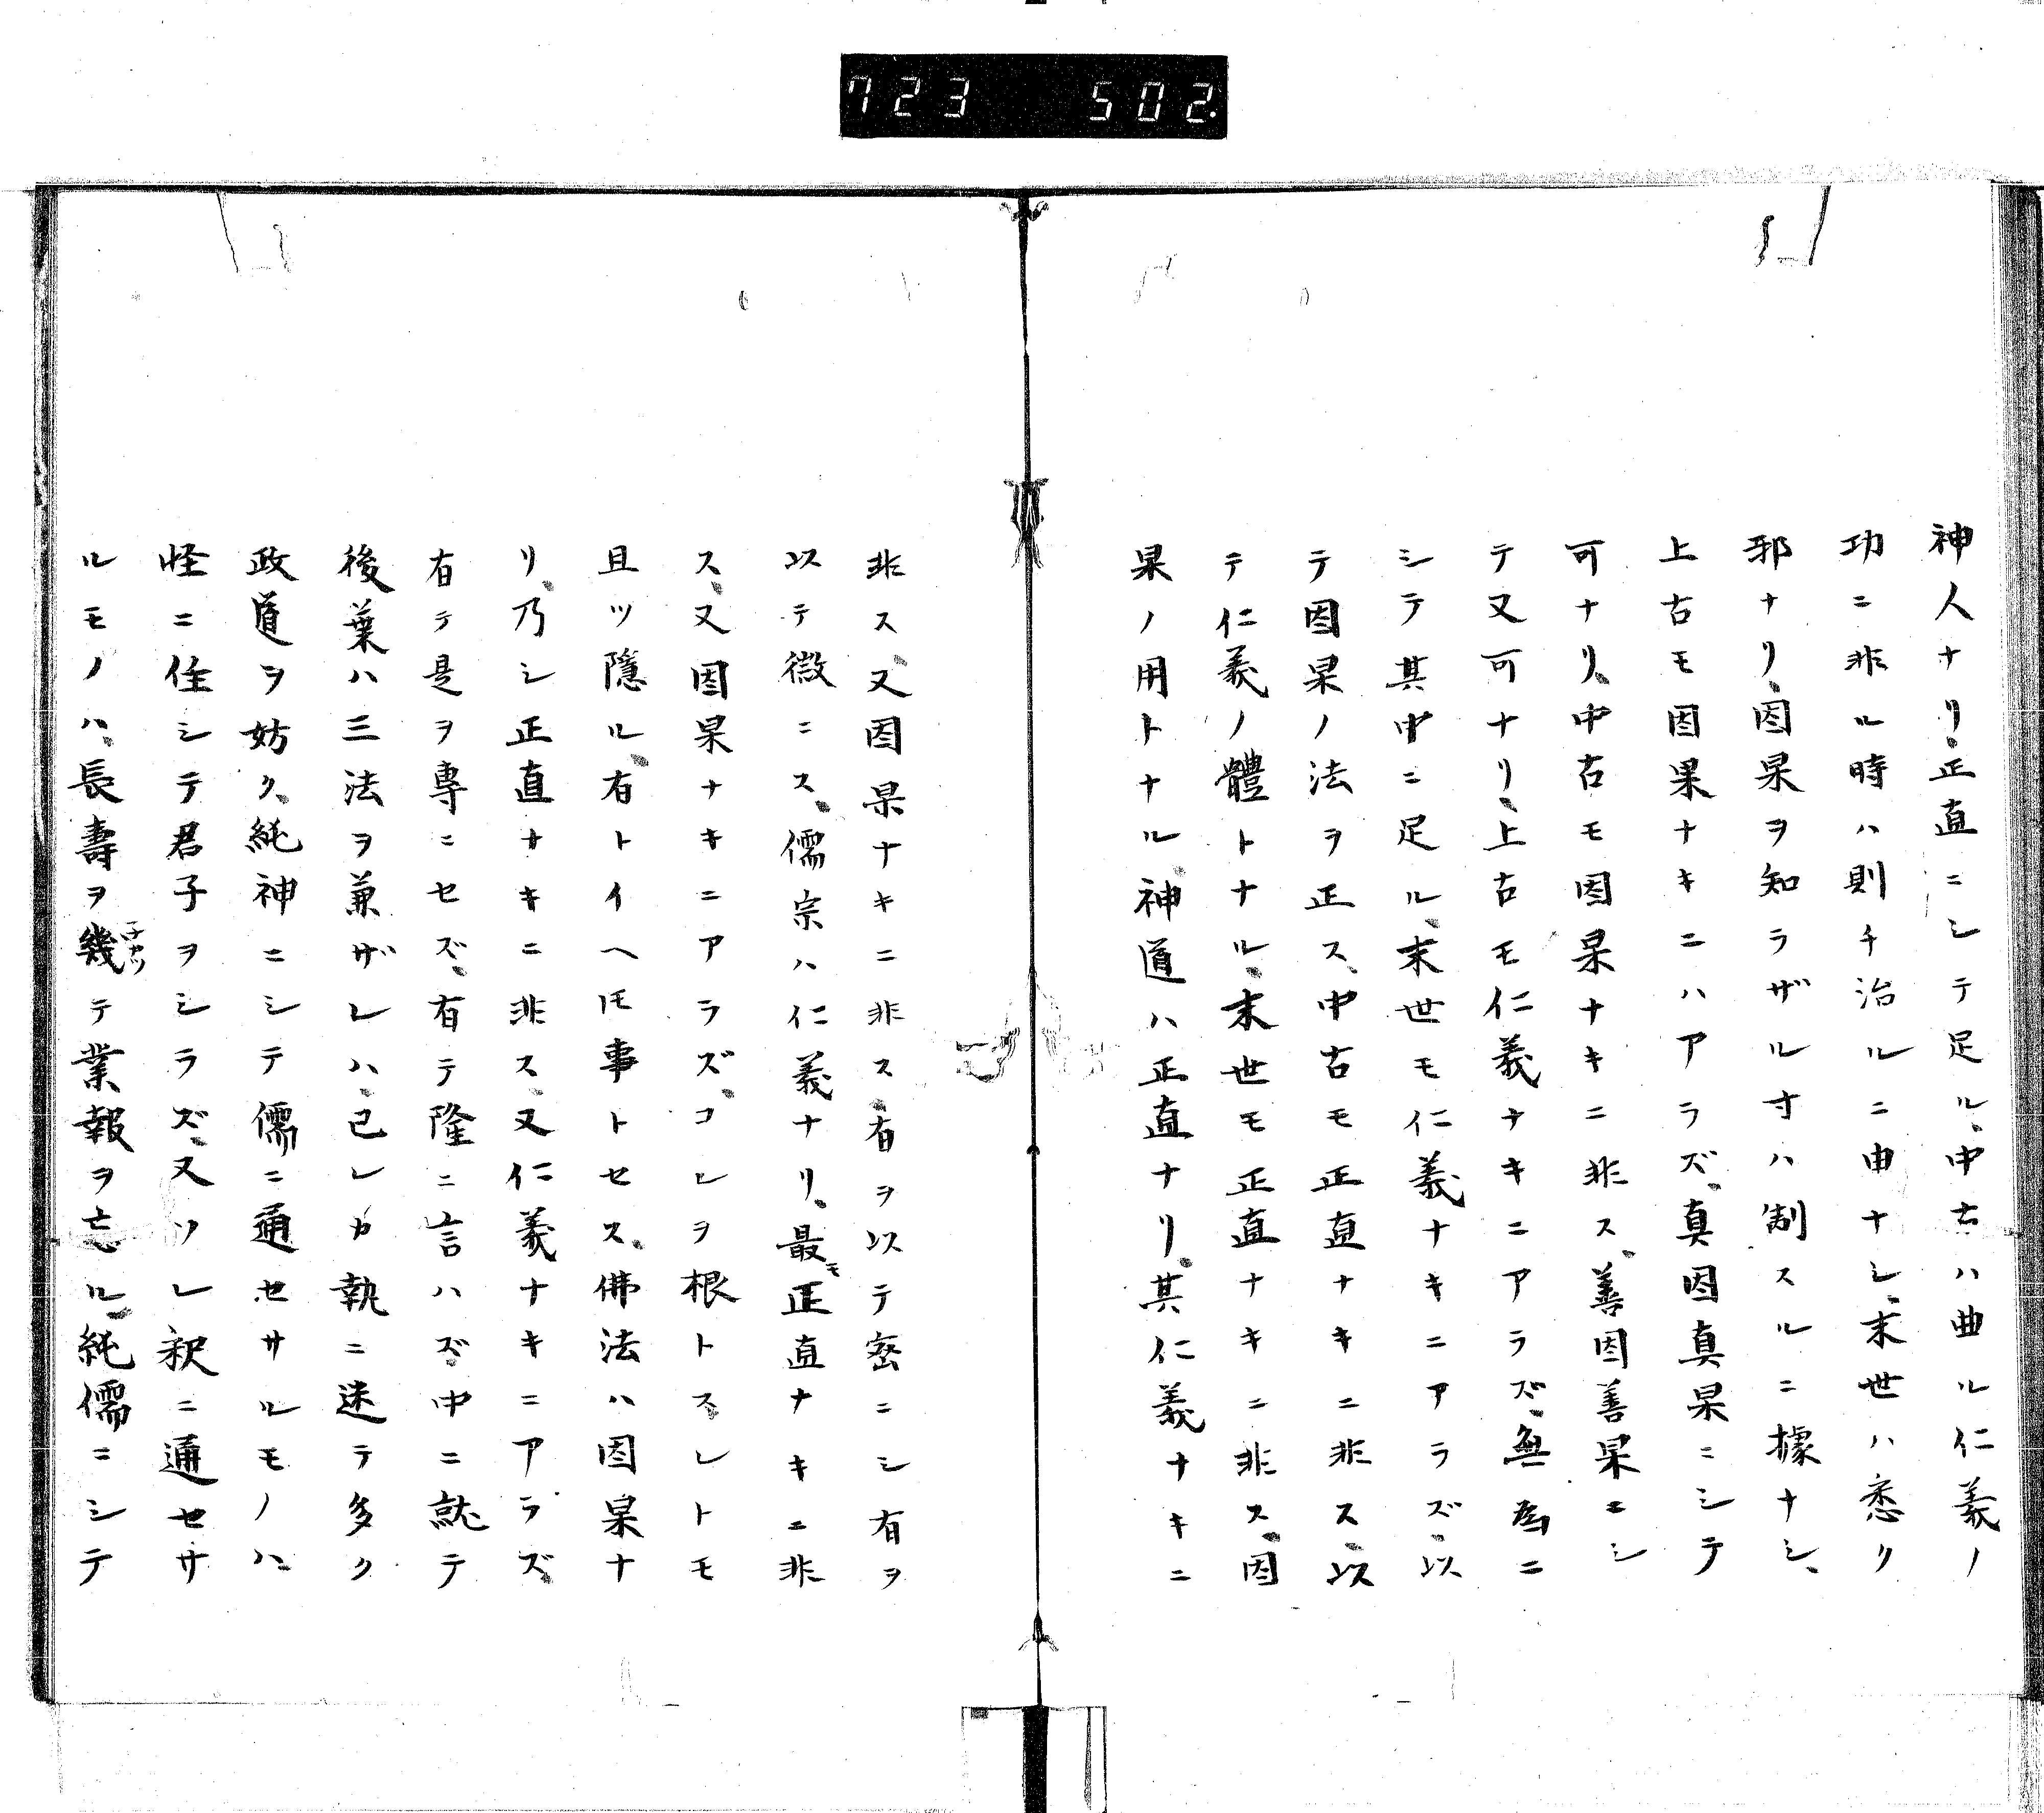 723 502
神人ナリ、正直ニシテ足ル、中古ハ曲ル仁義ノ
功ニ非ル時ハ則チ治ルニ申ナシ、末世ハ悉ク
邪ナリ、因果ヲ知ラザル寸ハ制スルニ據ナシ、
上古モ因果ナキニハアラズ、真因真果ニシテ
可ナリ、中古モ因果ナキニ非ス、善因善果ニシ
テ又可ナリ、上古モ仁義ナキニアラズ、無為ニ
シテ其中ニ足ル、末世モ仁義ナキニアラズ、以
テ因果ノ法ヲ正ス、中古モ正直ナキニ非ス、以
テ仁義ノ體トナル、末世モ正直ナキニ非ス、因
果ノ用トナル、神道ハ正直ナリ、其仁義ナキニ
非ス、又因果ナキニ非ス、有ヲ以テ密ニシ有ヲ
以テ微ニス、儒宗ハ仁義ナリ、最モ正直ナキニ非
ス、又因果ナキニアラズ、コレヲ根トスレトモ
且ツ隠ル、有トイヘ𪜈事トセス、佛法ハ因果ナ
リ、乃シ正直ナキニ非ス、又仁義ナキニアラズ、
有テ是ヲ專ニセズ、有テ隆ニ言ハズ、中ニ就テ
後葉ハ三法ヲ兼ザレハ、己レカ執ニ迷テ多ク
政道ヲ妨ク、純神ニシテ儒ニ通セサルモノハ、
怪ニ住シテ君子ヲシラズ、又ソレ釈ニ通セサ
ルモノハ、長壽ヲ幾テ業報ヲ忘ル、純儒ニシテ